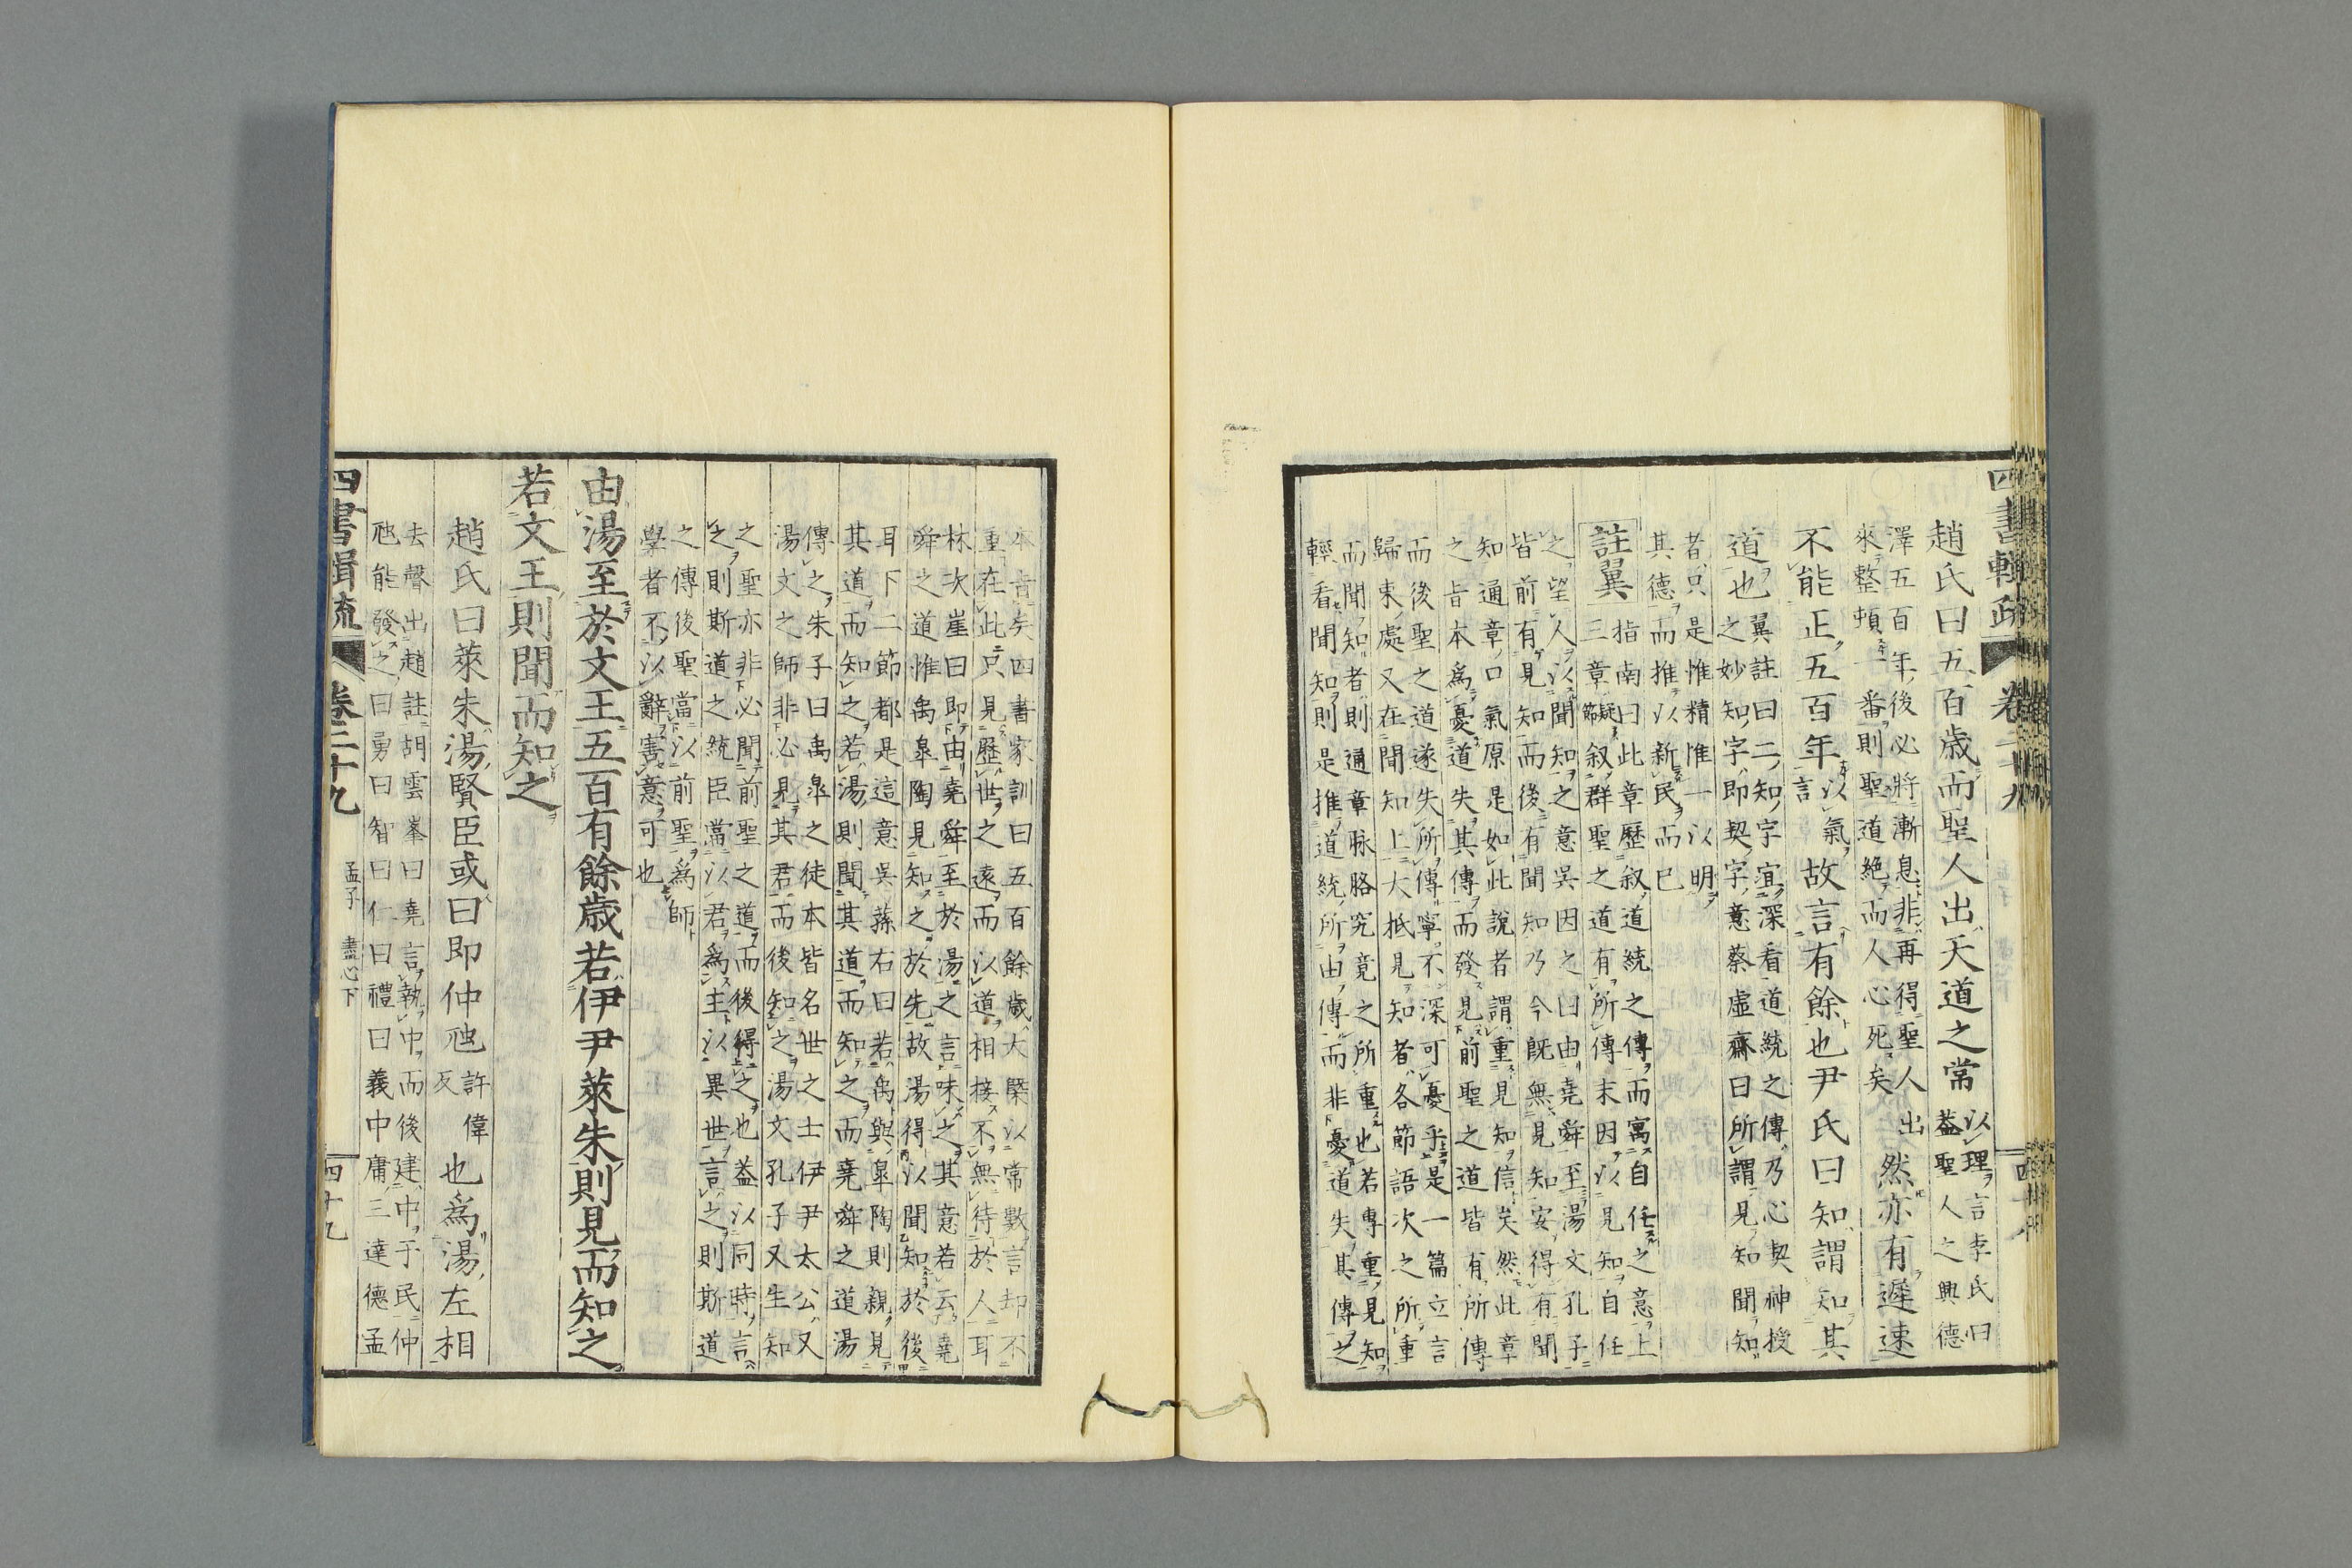 四書輯疏 卷二十九
趙氏曰五百歳而聖人出天道之常以理言李氏曰
蓋聖人之興德
澤五百年後必將漸息非再得聖人出
來整頓一番則聖道絶而人心死矣
然亦有遲速
不能正五百年以氣
言
故言有餘也尹氏曰知謂知其
道也翼註曰二知字宜深看道統之傳乃心契神授
之妙知字即契字意蔡虛齋曰所謂見知聞知
者只是惟精惟一以明
其德而推以新民而已
註翼
指南曰此章歷叙道統之傳而寓自任之意上
三章疑節叙群聖之道有所傳末因以見知自任
之望人以聞知之意吳因之曰由堯舜至湯文孔子
皆前有見知而後有聞知乃今既無見知安得有聞
知通章口氣原是如此說者謂重見知信矣然此章
之旨本爲憂道失其傳而發見前聖之道皆有所傳
而後聖之道遂失所傳寧不深可憂乎是一篇立言
歸束處又在聞知上大抵見知者各節語次之所重
而聞知者則通章脉胳究竟之所重也若專重見知
輕看聞知則是推道統所由傳而非憂道失其傳之
本旨矣四書家訓曰五百餘歳大槩以常數言却不
重在此只見歷世之遠而以道相接不無待於人耳
林次崖曰即由堯舜至於湯之言味之其意若云堯
舜之道惟禹皐陶見知之於先故湯得以聞知於後
耳下二節都是這意吳蓀右曰若禹與皐陶則親見
其道而知之若湯則聞其道而知之而堯舜之道湯
傳之朱子曰禹皐之徒本皆名世之士伊尹太公又
湯文之師非必見其君而後知之湯文孔子又生知
之聖亦非必聞前聖之道而後得之也蓋以同時言
之則斯道之統臣當以君爲主以異世言之則斯道
之傳後聖當以前聖爲師
學者不以辭害意可也
由湯至於文王五百有餘歳若伊尹萊朱則見而知之
若文王則聞而知之
趙氏曰萊朱湯賢臣或曰即仲虺許偉
反
也爲湯左相
去聲出趙註胡雲峯曰堯言執中而後建中于民仲
虺能發之曰勇曰智曰仁曰禮曰義中庸三達德孟
四書輯疏 卷二十九 孟子 盡心下 四十九